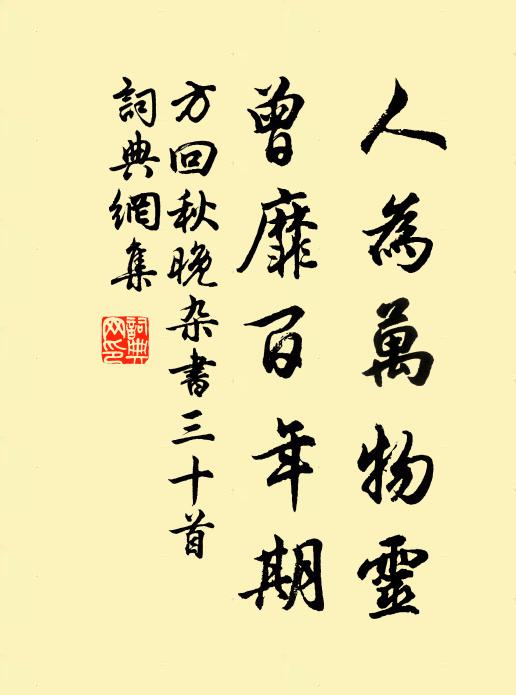 人為萬物靈
曾靡百年期
方回秋晚杂書三十首
詞典網集
詞典網印